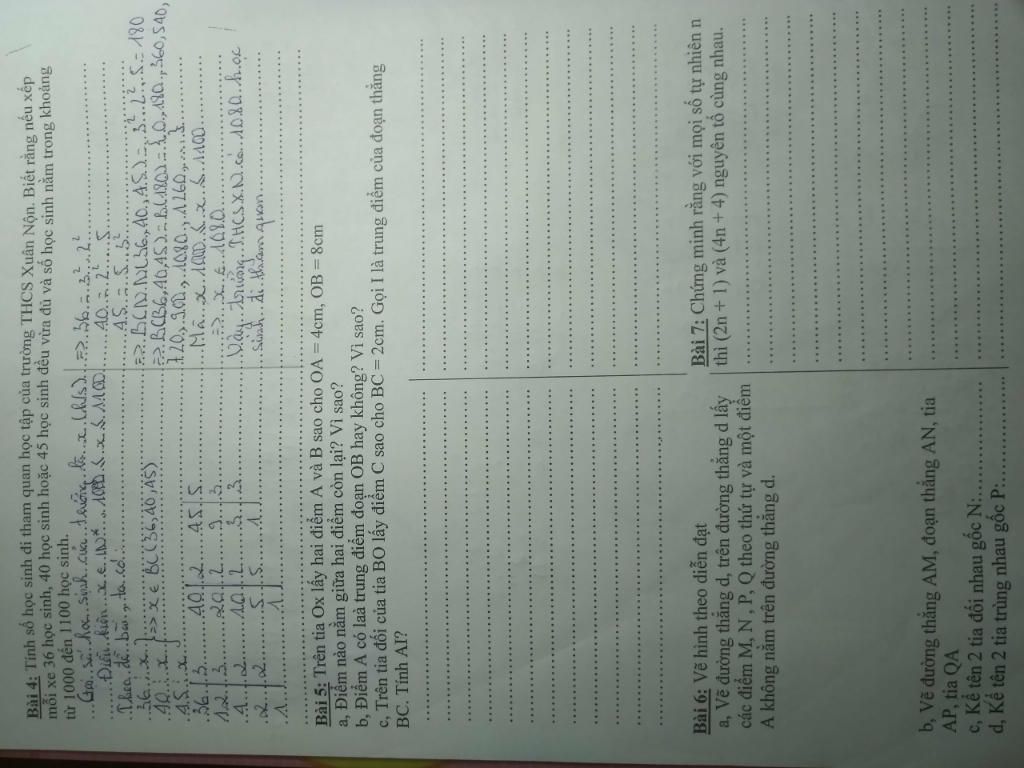 Bài 4: Tính số học sinh đi tham quan học tập của trường THCS Xuân Nộn. Biết rằng nếu xếp
mỗi xe 36 học sinh, 40 học sinh hoặc 45 học sinh đều vừa đủ và số học sinh nằm trong khoảng
từ 1000 đến 1100 học sinh.
Gọi số học sinh của trường là x (h/s)
Điều kiện x ∈ N* 1000 ≤ x ≤ 1100
Theo đề bài, ta có:
36 ⋮ x
40 ⋮ x } => x ∈ BC(36,40,45)
45 ⋮ x
36 | 3 40 | 2 45 | 5
12 | 3 20 | 2 9 | 3
4 | 2 10 | 2 3 | 3
2 | 2 5 | 5 1
1 1
=> 36 = 3².2²
40 = 2².5
45 = 5.3²
=> BCNN(36,40,45) = 3².2².5 = 180
=> BC(36,40,45) = B(180) = {0,180,360,540,
720,900,1080,1260,...}
Mà x 1000 ≤ x ≤ 1100
=> x ∈ 1080
Vậy trường THCS XN có 1080 học
sinh đi tham quan
Bài 5: Trên tia Ox lấy hai điểm A và B sao cho OA = 4cm, OB = 8cm
a, Điểm nào nằm giữa hai điểm còn lại? Vì sao?
b, Điểm A có laà trung điểm đoạn OB hay không? Vì sao?
c, Trên tia đối của tia BO lấy điểm C sao cho BC = 2cm. Gọi I là trung điểm của đoạn thẳng
BC. Tính AI?
Bài 6: Vẽ hình theo diễn đạt
a, Vẽ đường thẳng d, trên đường thẳng d lấy
các điểm M, N , P, Q theo thứ tự và một điểm
A không nằm trên đường thẳng d.
b, Vẽ đường thẳng AM, đoạn thẳng AN, tia
AP, tia QA
c, Kể tên 2 tia đối nhau gốc N:
d, Kể tên 2 tia trùng nhau gốc P:
Bài 7: Chứng minh rằng với mọi số tự nhiên n
thì (2n + 1) và (4n + 4) nguyên tố cùng nhau.